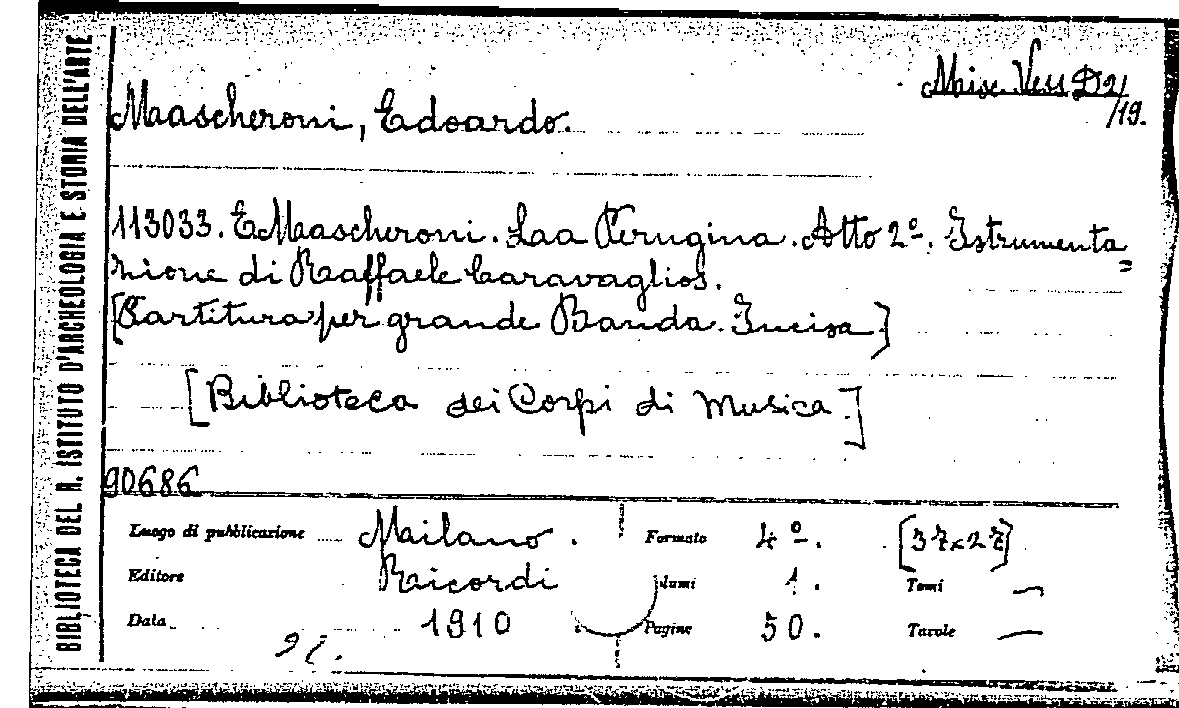 BIBLIOTECA DEL R. ISTITUTO D'ARCHEOLOGIA E STORIA DELL'ARTE
Misc. Vess D2/
/19.
Mascheroni, Edoardo.
113033. E Mascheroni. Laa Perugina. Atto 2º. Istrumenta
zione di Raffaele Caravaglios.
[Partitura per grande Banda. Incisa]
[Biblioteca dei Corpi di Musica.]
90686
Luogo di pubblicazione Milano. Formato 4º. [37x27]
Editore Ricordi lumi 1. Tomi —
Data 1910 Pagine 50. Tavole —